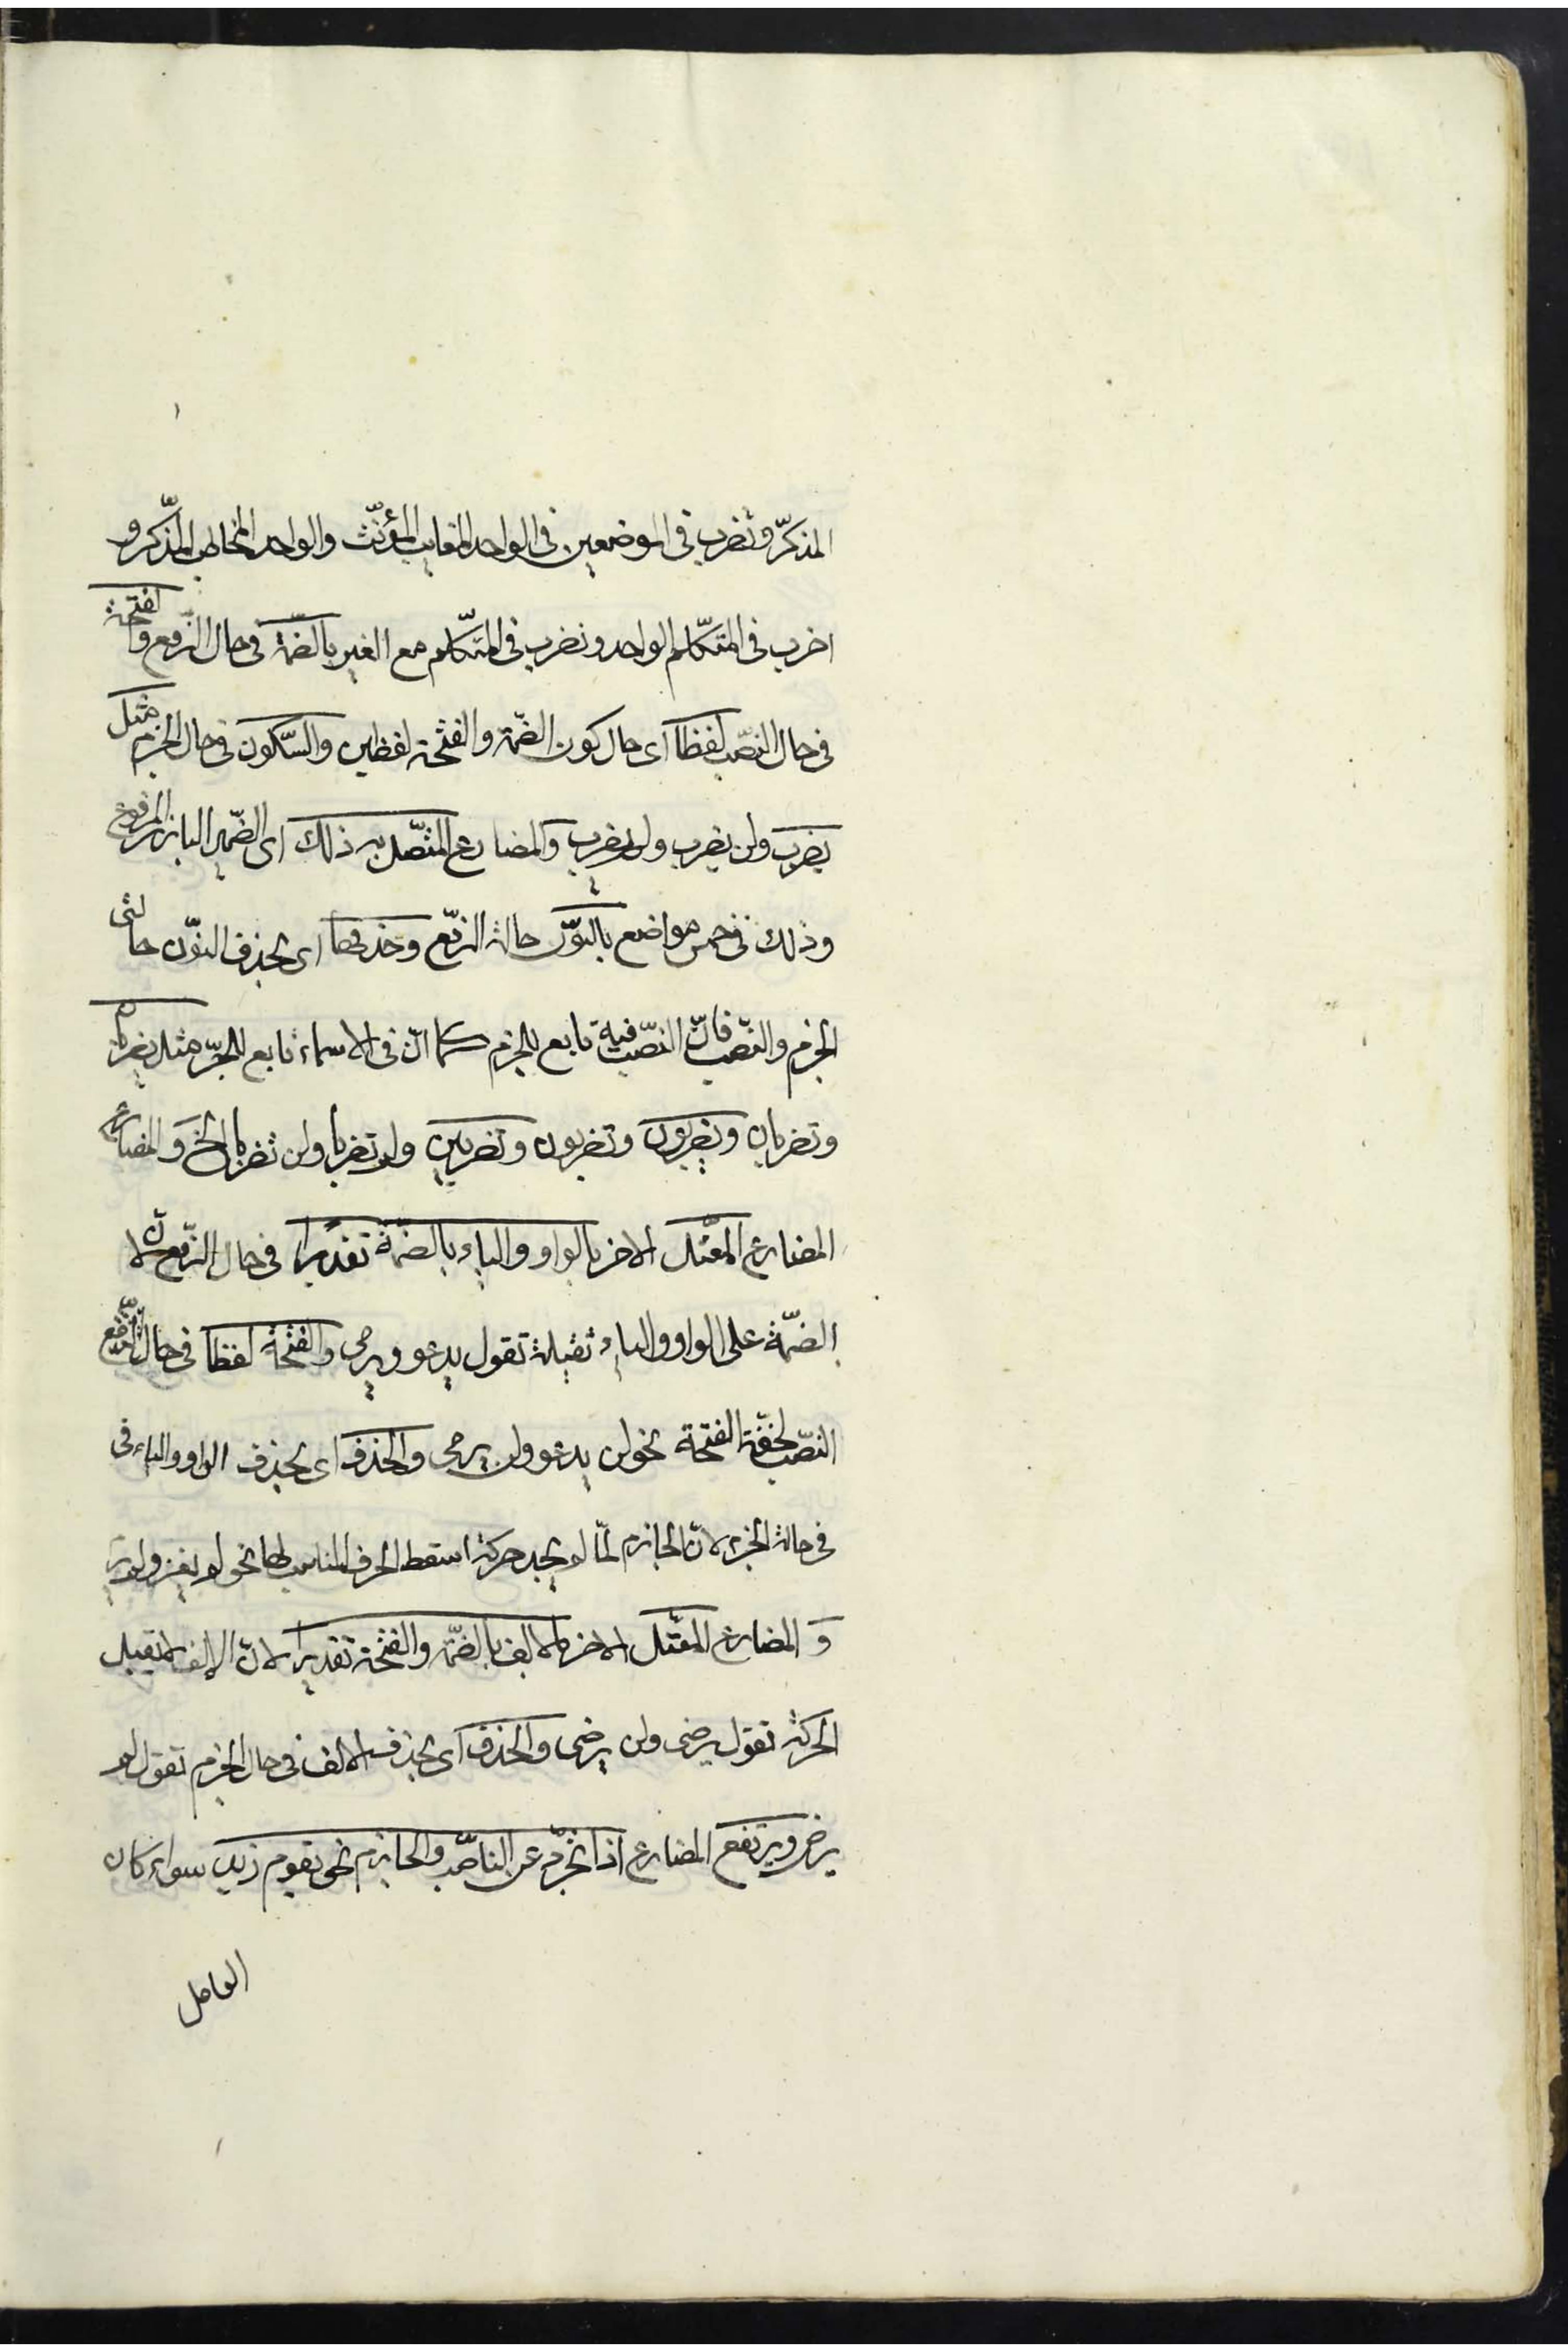 المذكّر وتضرب فى الموضعين فى الواحد الغايب المؤنّث والواحد المخاطب المذّكر و
اضرب فى المتكّلم الواحد ونضرب فى المتكّلم مع الغير بالضمّة فى حال الرّفع والفتحة
فى حال النصّب لفظا اى حال كون الضمّة والفتحة لفظين والسّكون فى حال الجزم مثل
يضرب ولن يضرب ولم يضرب والمضارع المتّصل به ذلك اى الضمّير البارز المرفوع
وذلك فى خمس مواضع بالنوّن حالة الرّفع وحذفها اى بحذف النوّن حالتى
الجزم والنصّب فانّ النصّب فيه تابع للجزم كما انّ فى الاسماء تابع للجرّ مثل يضربان
وتضربان ويضربون وتضربون وتضربين ولم تضربا ولن تضربا الخ والمضارع
المضارع المعتّل الاخر بالواو والياء بالضمّة تقديرا فى حال الرّفع لانّ
الضمّة على الواو والياء ثقيلة تقول يدعو ويرمى والفتحة لفظا فى حال الرّفع
النصّب لخفّة الفتحة نحو لن يدعو ولن يرمى والحذف اى بحذف الواو والياء فى
فى حالة الجزم لانّ الجازم لمّا لم يجد حركة اسقط الحرف المناسب لها نحو لم يغز ولم يرم
و المضارع المعتّل الاخر بالالف بالضمّة والفتحة تقديرا لانّ الالف لا تقبل
الحركة تقول يرضى ولن يرضى والحذف اى بحذف الالف فى حال الجزم تقول لم
يرض ويرتفع المضارع اذا تجرّد عن الناصّب والجازم نحو يقوم زيد سواء كان
العامل